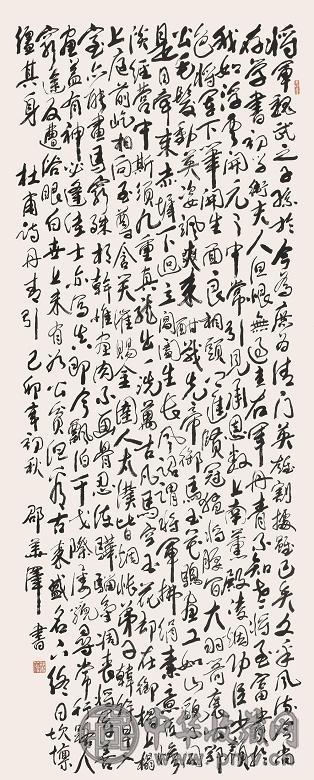 將軍魏武之子孫於今為庶為清門英雄割據雖已矣文采風流尚
存學書初學衛夫人但恨無過王右軍丹青不知老將至富貴於
我如浮雲開元之中常引見承恩數上南薰殿凌煙功臣少顏
色將軍下筆開生面良相頭上進賢冠猛將腰間大羽箭褒公鄂
公毛髮動英姿颯爽來酣戰先帝御馬玉花驄畫工如山貌不同
是日牽來赤墀下迥立閶闔生長風詔謂將軍拂絹素意匠慘
淡經營中斯須九重真龍出一洗萬古凡馬空玉花却在御榻上榻
上庭前屹相向至尊含笑催賜金圉人太僕皆惆悵弟子韓幹早入
室亦能畫馬窮殊相幹惟畫肉不畫骨忍使驊騮氣凋喪將軍善
畫蓋有神必逢佳士亦寫真即今飄泊干戈際屢貌尋常行路人
窮途反遭俗眼白世上未有如公貧但看古來盛名下終日坎壈
纏其身 杜甫詩丹青引 己卯年初秋 邵華澤書
中华收藏网